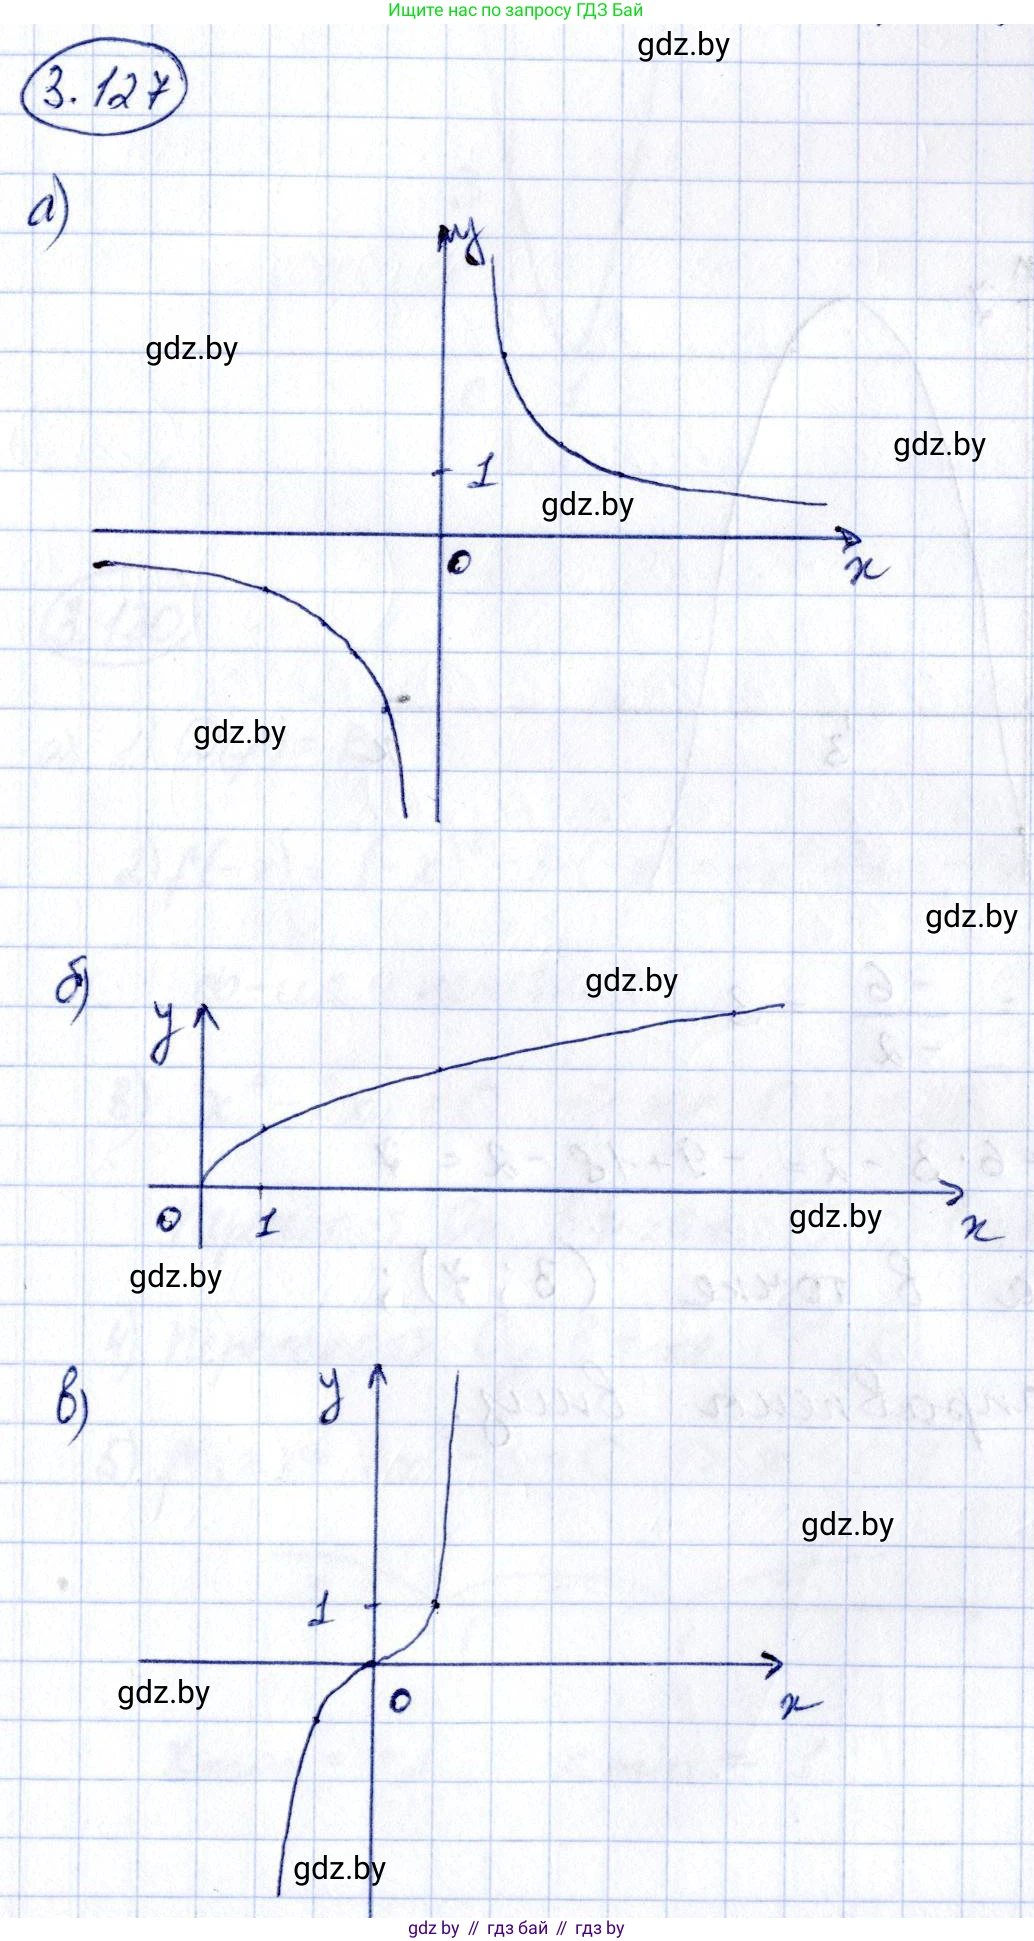 Ищите нас по запросу ГДЗ Бай
gdz.by
3.127
а)
y
gdz.by
gdz.by
1
gdz.by
0
x
gdz.by
gdz.by
б)
gdz.by
y
0
1
gdz.by
x
gdz.by
в)
y
gdz.by
1
gdz.by
0
x
gdz.by
gdz.by // гдз бай // гдз by